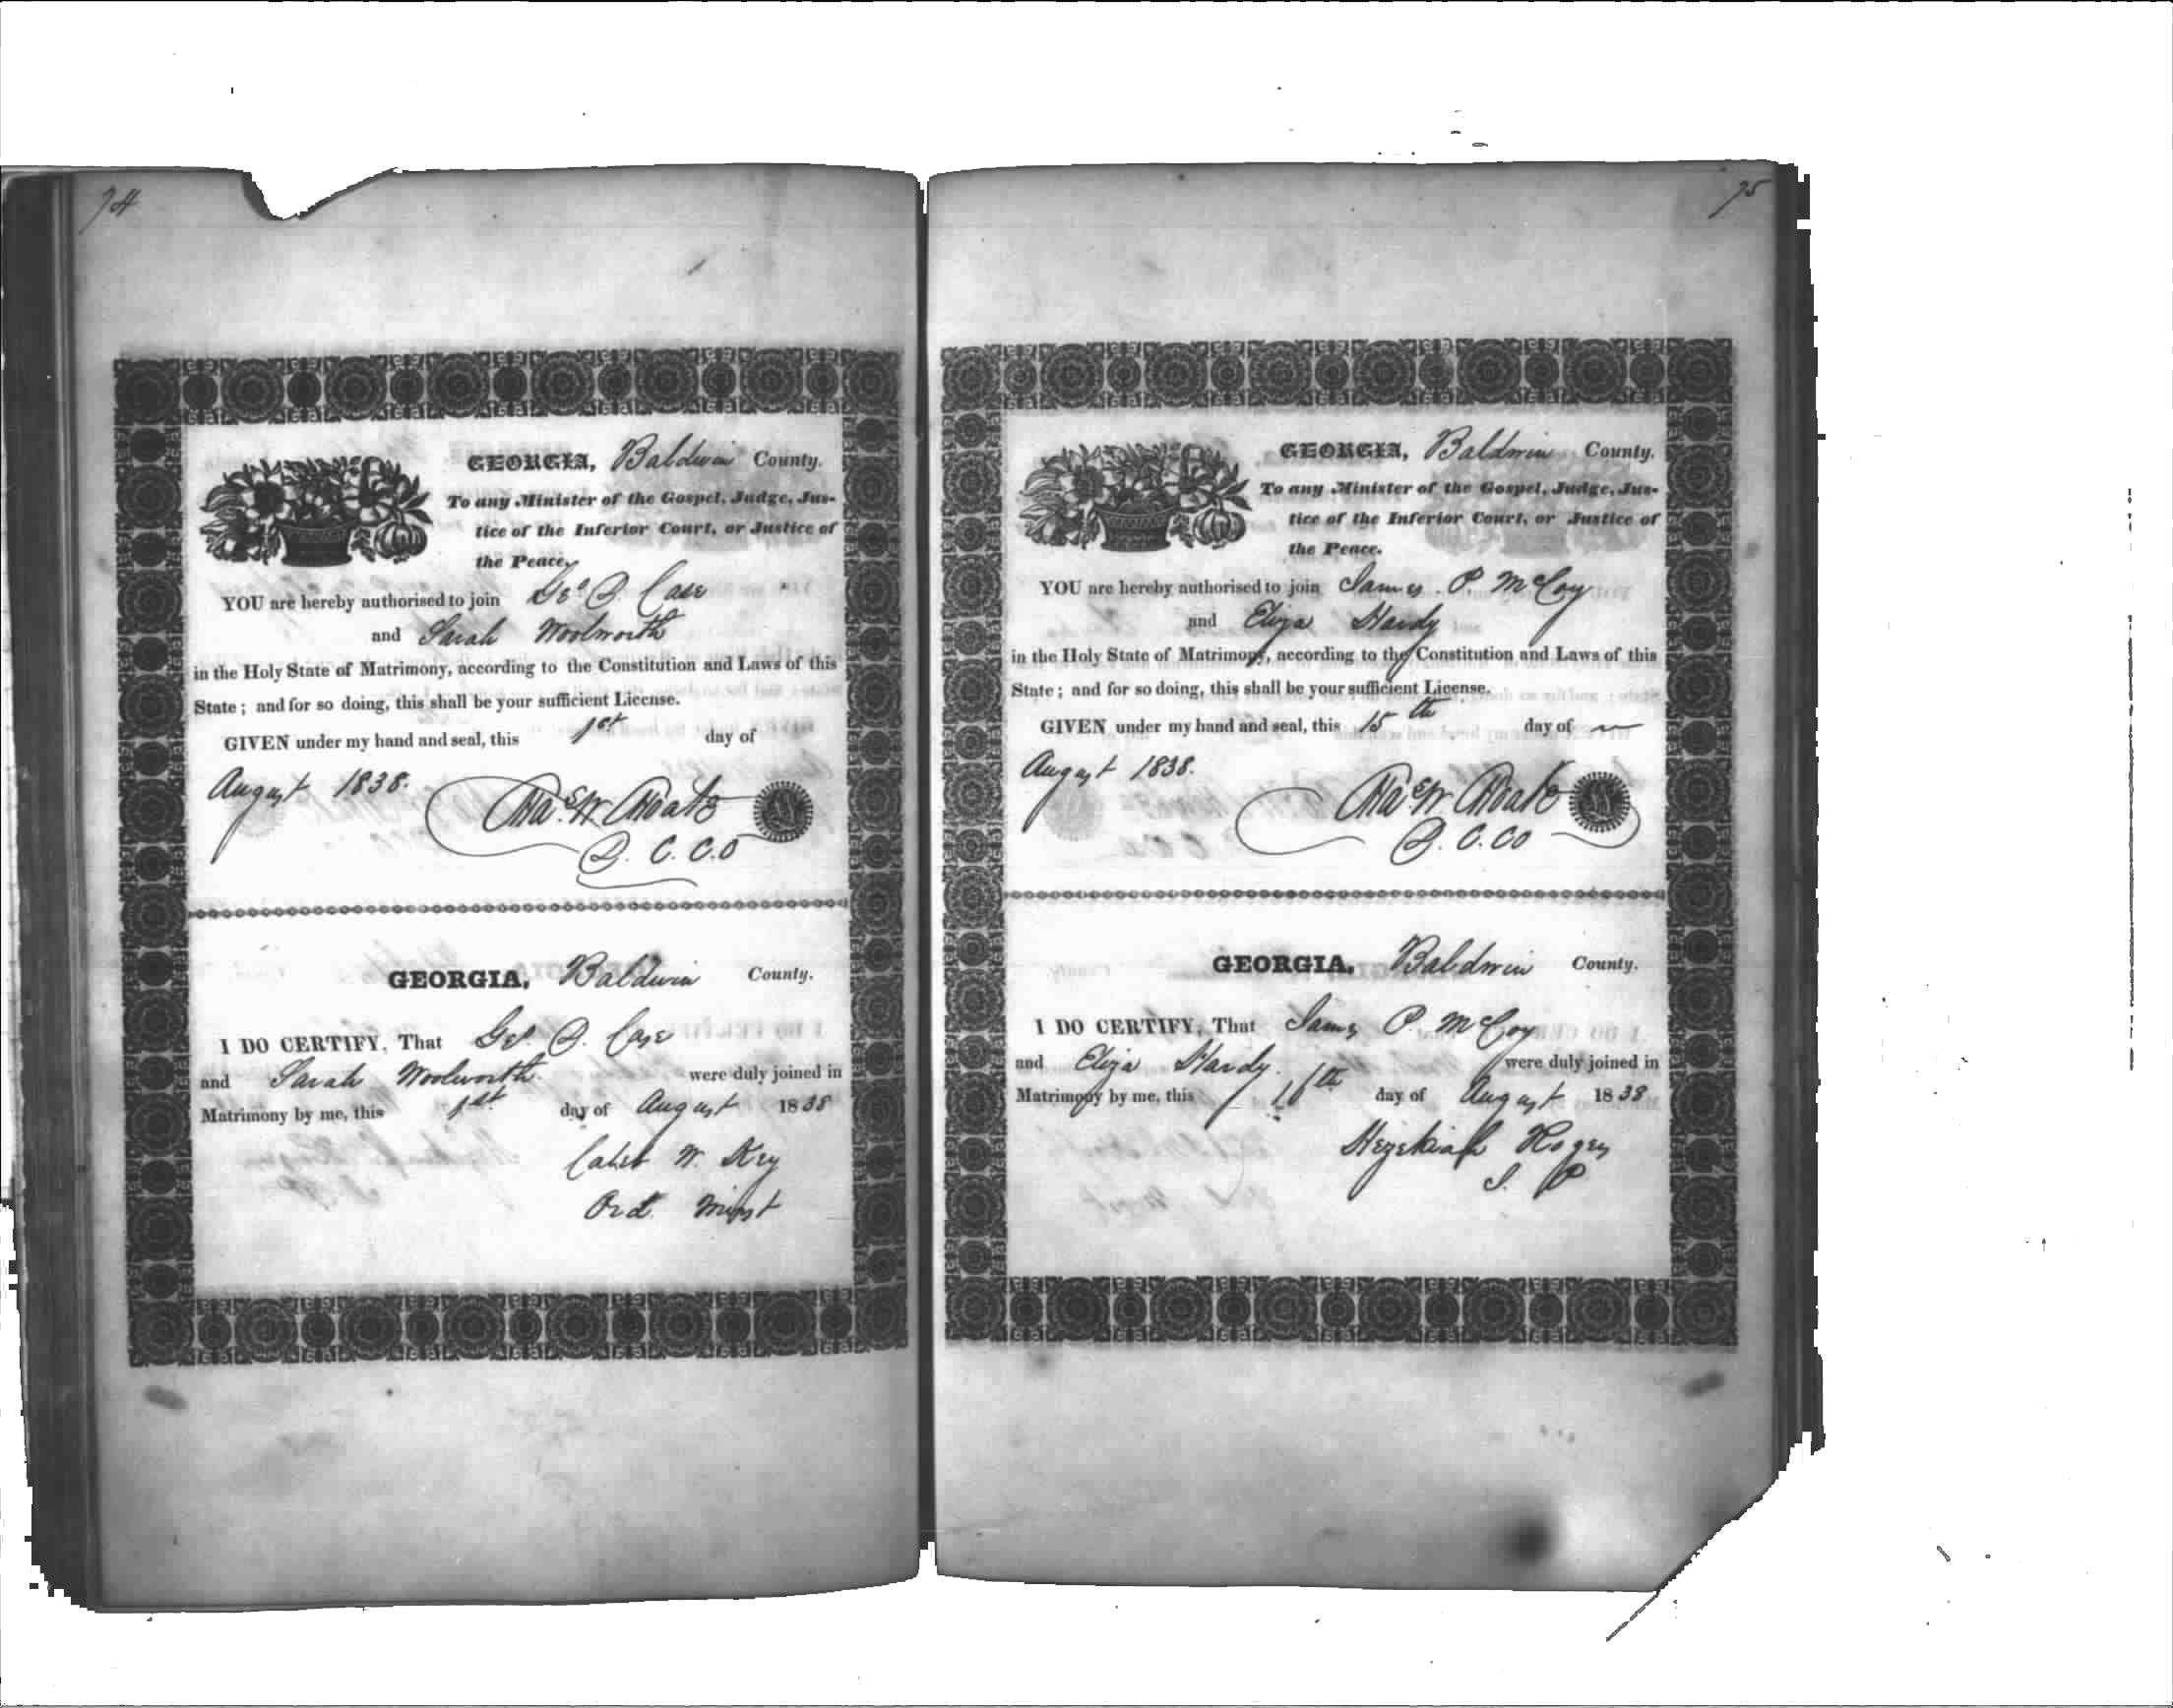 74
GEORGIA, Baldwin County.
To any Minister of the Gospel, Judge, Jus-
tice of the Inferior Court, or Justice of
the Peace.
YOU are hereby authorised to join Geo B. Case
and Sarah Woolworth
in the Holy State of Matrimony, according to the Constitution and Laws of this
State; and for so doing, this shall be your sufficient License.
GIVEN under my hand and seal, this 1st day of
August 1838.
Chas. W. Choate
D. C. C. O
GEORGIA, Baldwin County.
I DO CERTIFY, That Geo B. Case
and Sarah Woolworth were duly joined in
Matrimony by me, this 1st day of August 1838
Caleb W. Key
Ord. Minst
75
GEORGIA, Baldwin County.
To any Minister of the Gospel, Judge, Jus-
tice of the Inferior Court, or Justice of
the Peace.
YOU are hereby authorised to join James P. McCoy
and Eliza Hardy
in the Holy State of Matrimony, according to the Constitution and Laws of this
State; and for so doing, this shall be your sufficient License.
GIVEN under my hand and seal, this 15th day of
August 1838.
Chas W. Choate
D. C. CO
GEORGIA, Baldwin County.
I DO CERTIFY, That James P. McCoy
and Eliza Hardy. were duly joined in
Matrimony by me, this 16th day of August 1838
Hezekiah
J. P